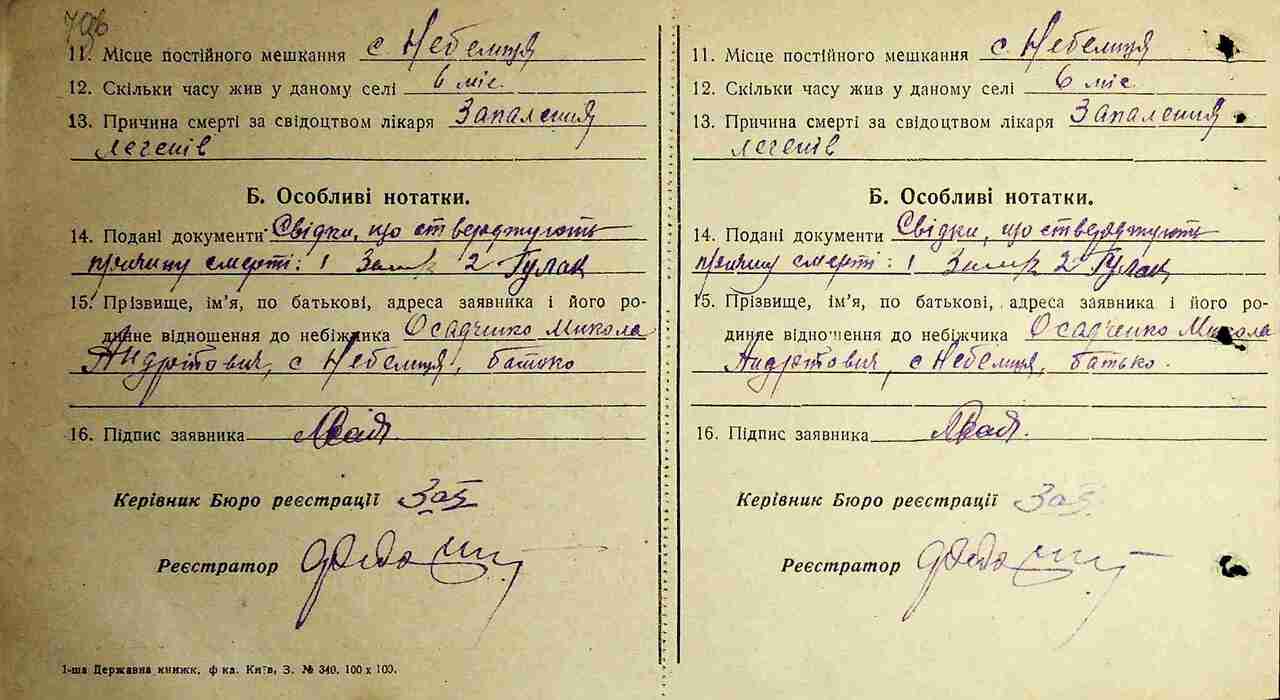 11. Місце постійного мешкання с Небелиця
12. Скільки часу жив у даному селі 6 міс.
13. Причина смерті за свідоцтвом лікаря Запалення
легенів
Б. Особливі нотатки.
14. Подані документи Свідки, що стверджують
причину смерті: 1 2 Гулак
15. Прізвище, ім’я, по батькові, адреса заявника і його ро-
динне відношення до небіжчика Осадченко Микола
Андрійович, с Небелиця, батько
16. Підпис заявника
Керівник Бюро реєстрації
Реєстратор
1-ша Державна книжк. ф-ка. Київ, З. № 340. 100 x 100.
11. Місце постійного мешкання с Небелиця
12. Скільки часу жив у даному селі 6 міс.
13. Причина смерті за свідоцтвом лікаря Запалення
легенів
Б. Особливі нотатки.
14. Подані документи Свідки, що стверджують
причину смерті: 1 2 Гулак
15. Прізвище, ім’я, по батькові, адреса заявника і його ро-
динне відношення до небіжчика Осадченко Микола
Андрійович, с Небелиця, батько.
16. Підпис заявника
Керівник Бюро реєстрації
Реєстратор